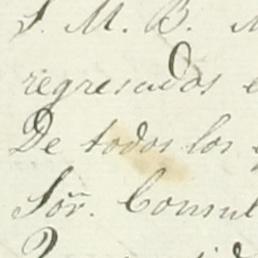 S. M. B.
regresados
De todos los
Soñr. Consul